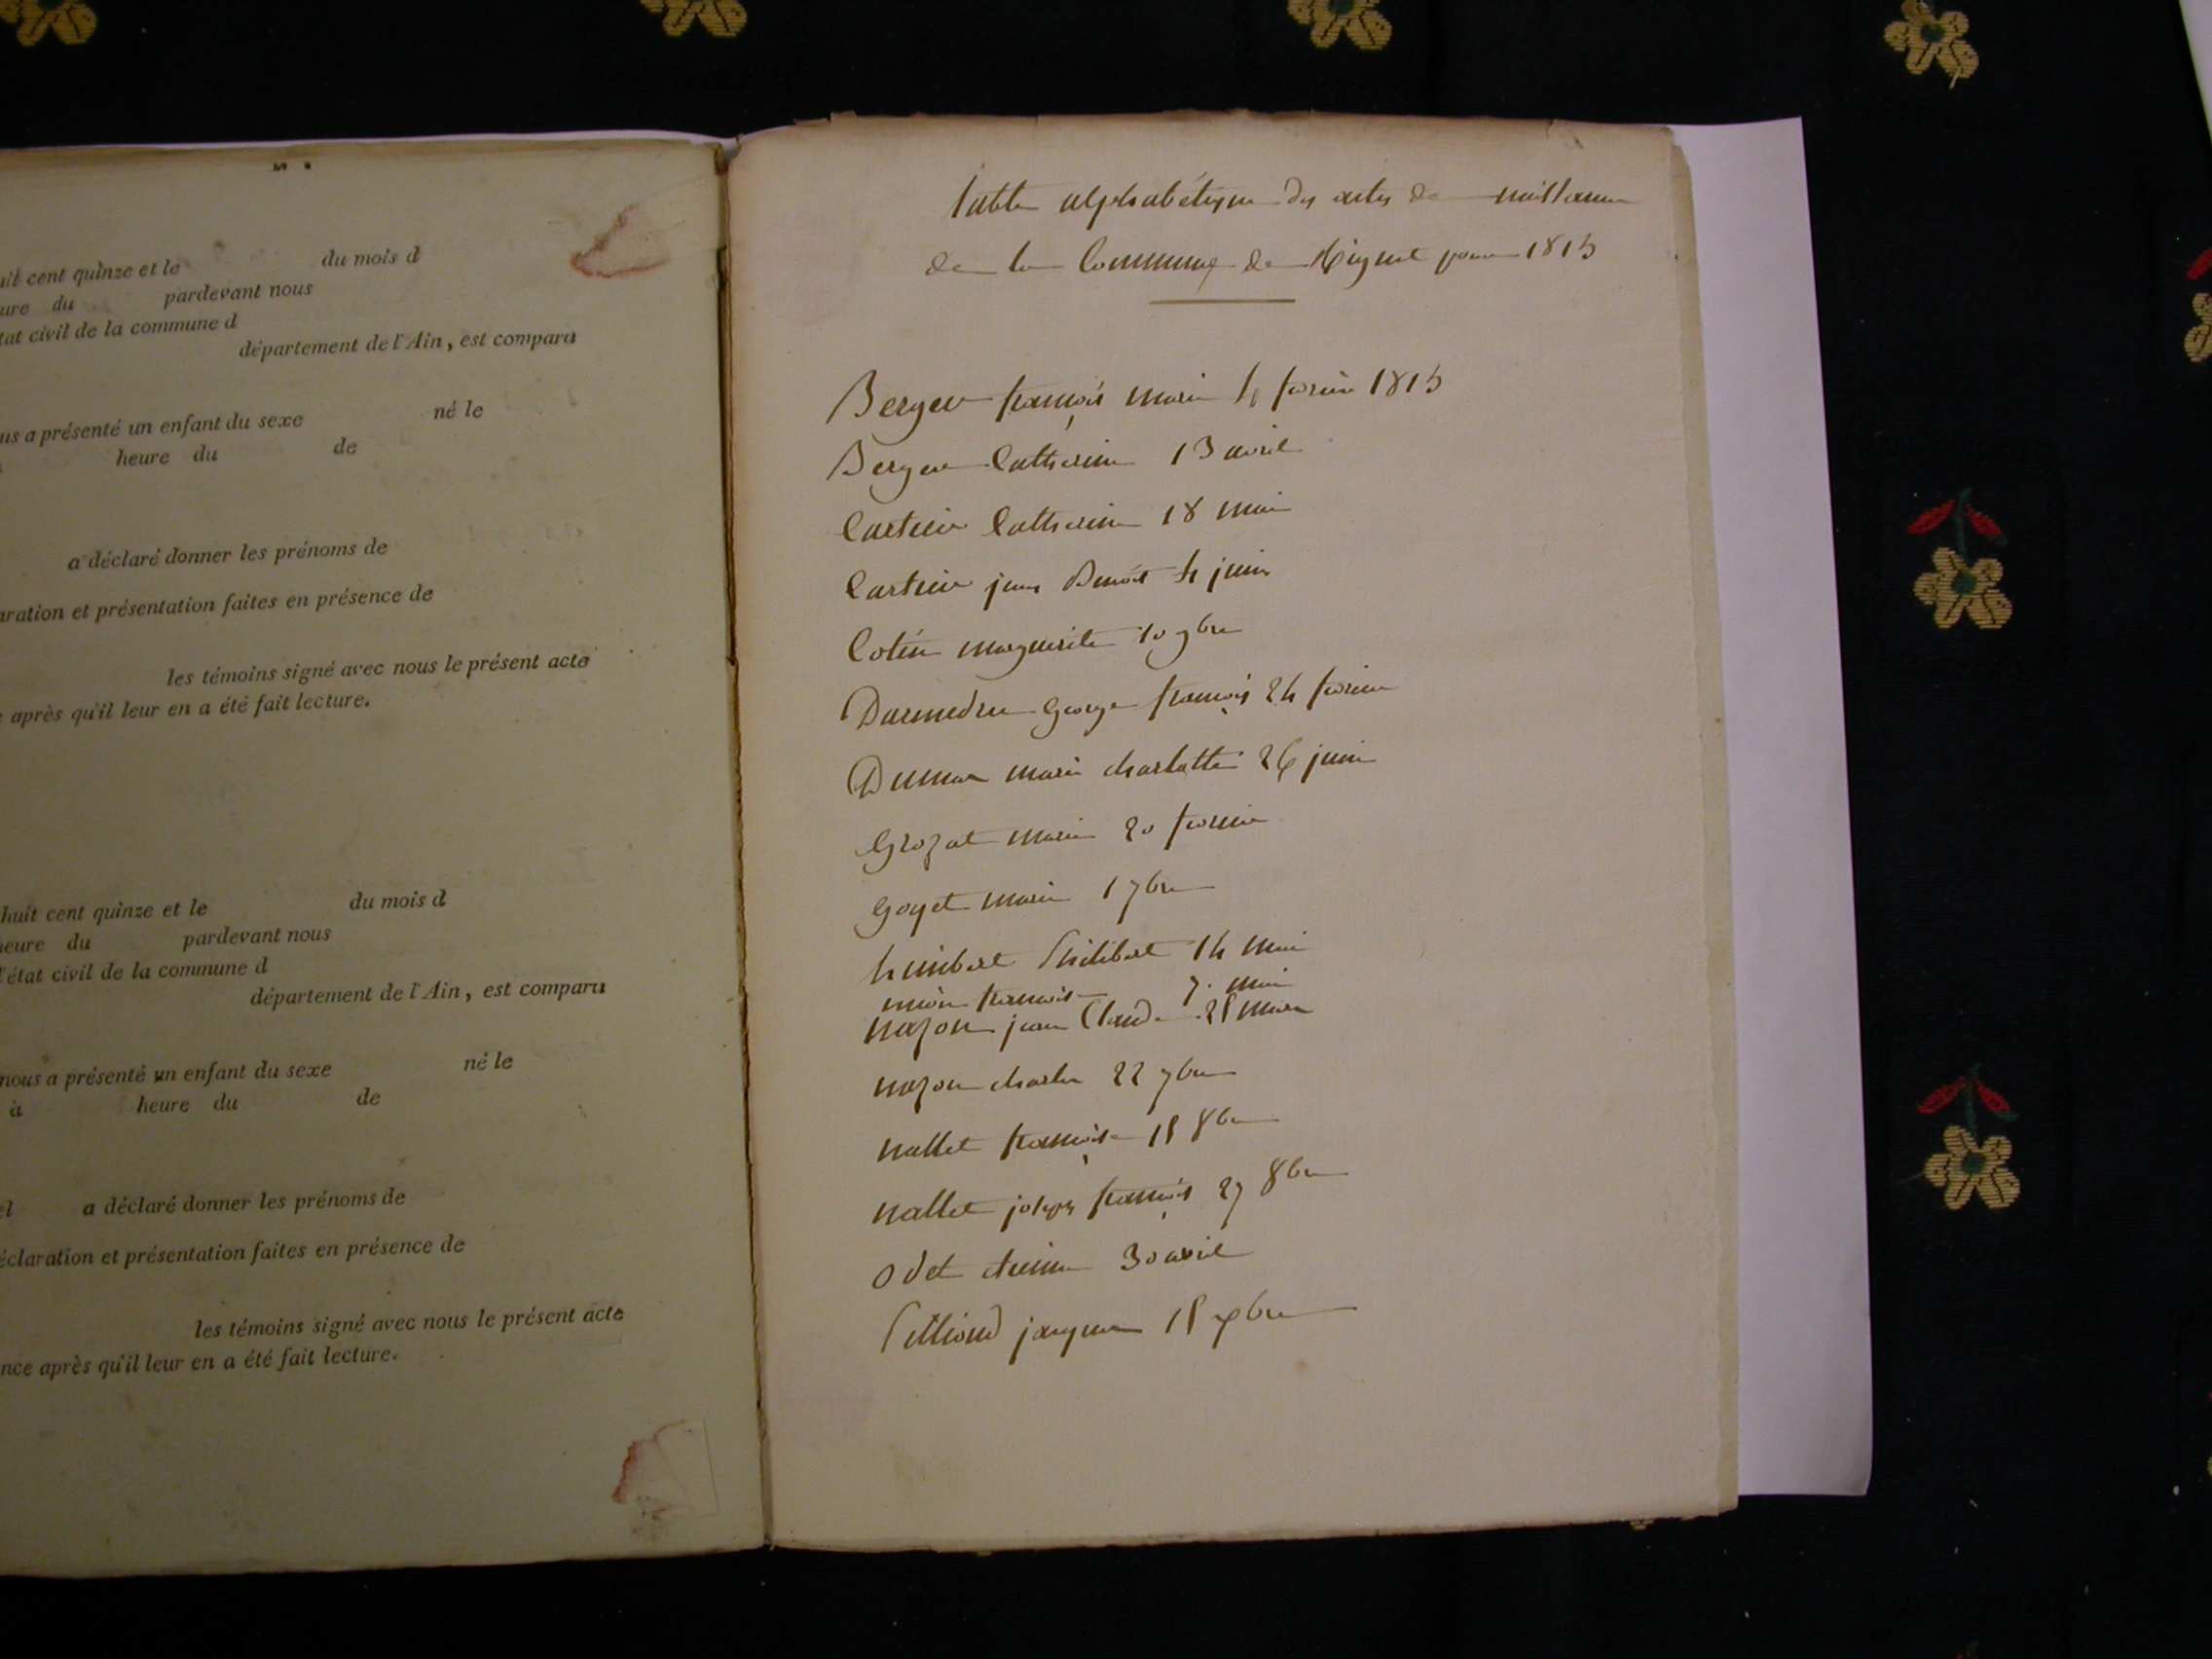 huit cent quinze et le du mois d
heure du pardevant nous
état civil de la commune d
département de l'Ain, est comparu
nous a présenté un enfant du sexe né le
heure du de
a déclaré donner les prénoms de
aration et présentation faites en présence de
les témoins signé avec nous le présent acte
après qu'il leur en a été fait lecture.
huit cent quinze et le du mois d
heure du pardevant nous
l'état civil de la commune d
département de l'Ain, est comparu
nous a présenté un enfant du sexe né le
à heure du de
el a déclaré donner les prénoms de
éclaration et présentation faites en présence de
les témoins signé avec nous le présent acte
nce après qu'il leur en a été fait lecture.
Table alphabétique des actes de naissance
de la Commune de pour 1815
Berger françois marie 4 fevrier 1815
Berger Catherine 13 avril
Cartier Catherine 18 mai
Cartier jean Benoit 4 juin
Cotin marguerite 10 9bre
Darmedru George françois 24 fevrier
Dumas marie charlotte 26 juin
Grozat marie 20 fevrier
Goyet marie 1 7bre
humbert Philibert 14 mai
françoise 7 mai
mazon jean Claude 25 mars
mazon charles 22 7bre
nallet françoise 15 8bre
nallet joseph françois 27 8bre
Odet etienne 30 avril
Pittiond jacques 15 xbre